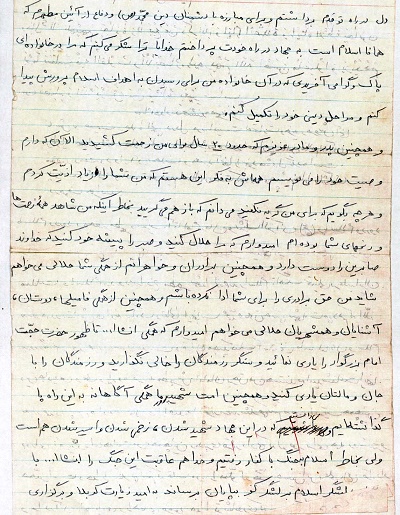 دل در راه تو قدم برداشتم و برای مبارزه با دشمنان دین محمد (ص) و دفاع از آئین مطهرم که
همانا اسلام است به جهاد در راه خودت پرداختم خدایا ترا شکر می‌کنم که مرا در خانواده‌ای
پاک و گرامی آفریدی که در آن خانواده من برای رسیدن به اهداف اسلام پرورش پیدا
کنم و مراحل دینی خود را تکمیل کنم.
و همچنین پدر و مادر عزیزم که حدود ۲۰ سال برای من زحمت کشیدید الآن که دارم
وصیت خود را می‌نویسم همه‌اش به فکر این هستم که من شما را زیاد اذیت کردم
و هر چه بگویم که برای من گریه نکنید می‌دانم که باز هم می‌گریید بخاطر اینکه من شاهد همه زحمتها
و رنجهای شما بوده‌ام امیدوارم که مرا حلال کنید و صبر را پیشه خود کنید که خداوند
صابرین را دوست دارد و همچنین برادران و خواهرانم از همگی شما حلالی می‌خواهم
شاید من حق برادری را برای شما ادا نکرده باشم و همچنین از همگی فامیلها، دوستان،
آشنایان و همشهریان حلالی می‌خواهم امیدوارم که همگی انشاا... تا ظهور حضرت حجت
امام بزرگوار را یاری نمائید و سنگر رزمندگان را خالی نگذارید و رزمندگان را با
جان و مالتان یاری کنید و همچنین امت شهیدپرور ما همگی آگاهانه به این راه پا
گذاشته‌ایم که در این جهاد شهید شدن، زخمی شدن و اسیر شدن هم است
ولی بخاطر اسلام به جنگ با کفار رفتیم و خدا هم عاقبت این جنگ را انشاا... با
لشگر اسلام به پایان برساند به امید زیارت کربلا و برگزاری